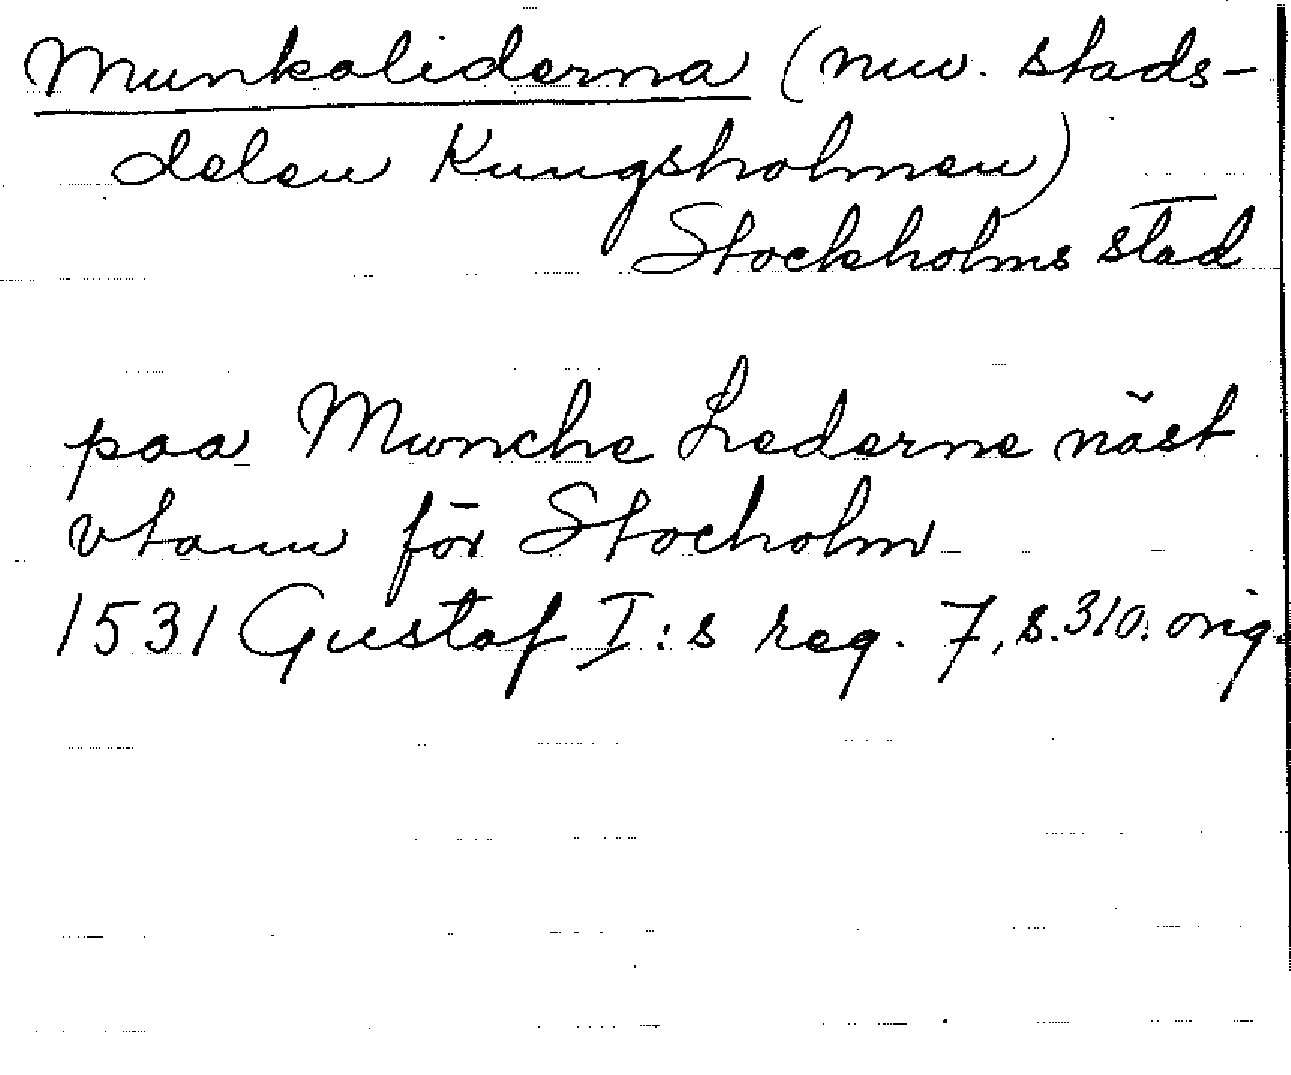 Munkaliderna (nuv. stads-
delen Kungsholmen)
Stockholms stad
paa Munche Lederne näst
vtann för Stocholm
1531 Gustaf I:s reg. 7, s. 310. orig.